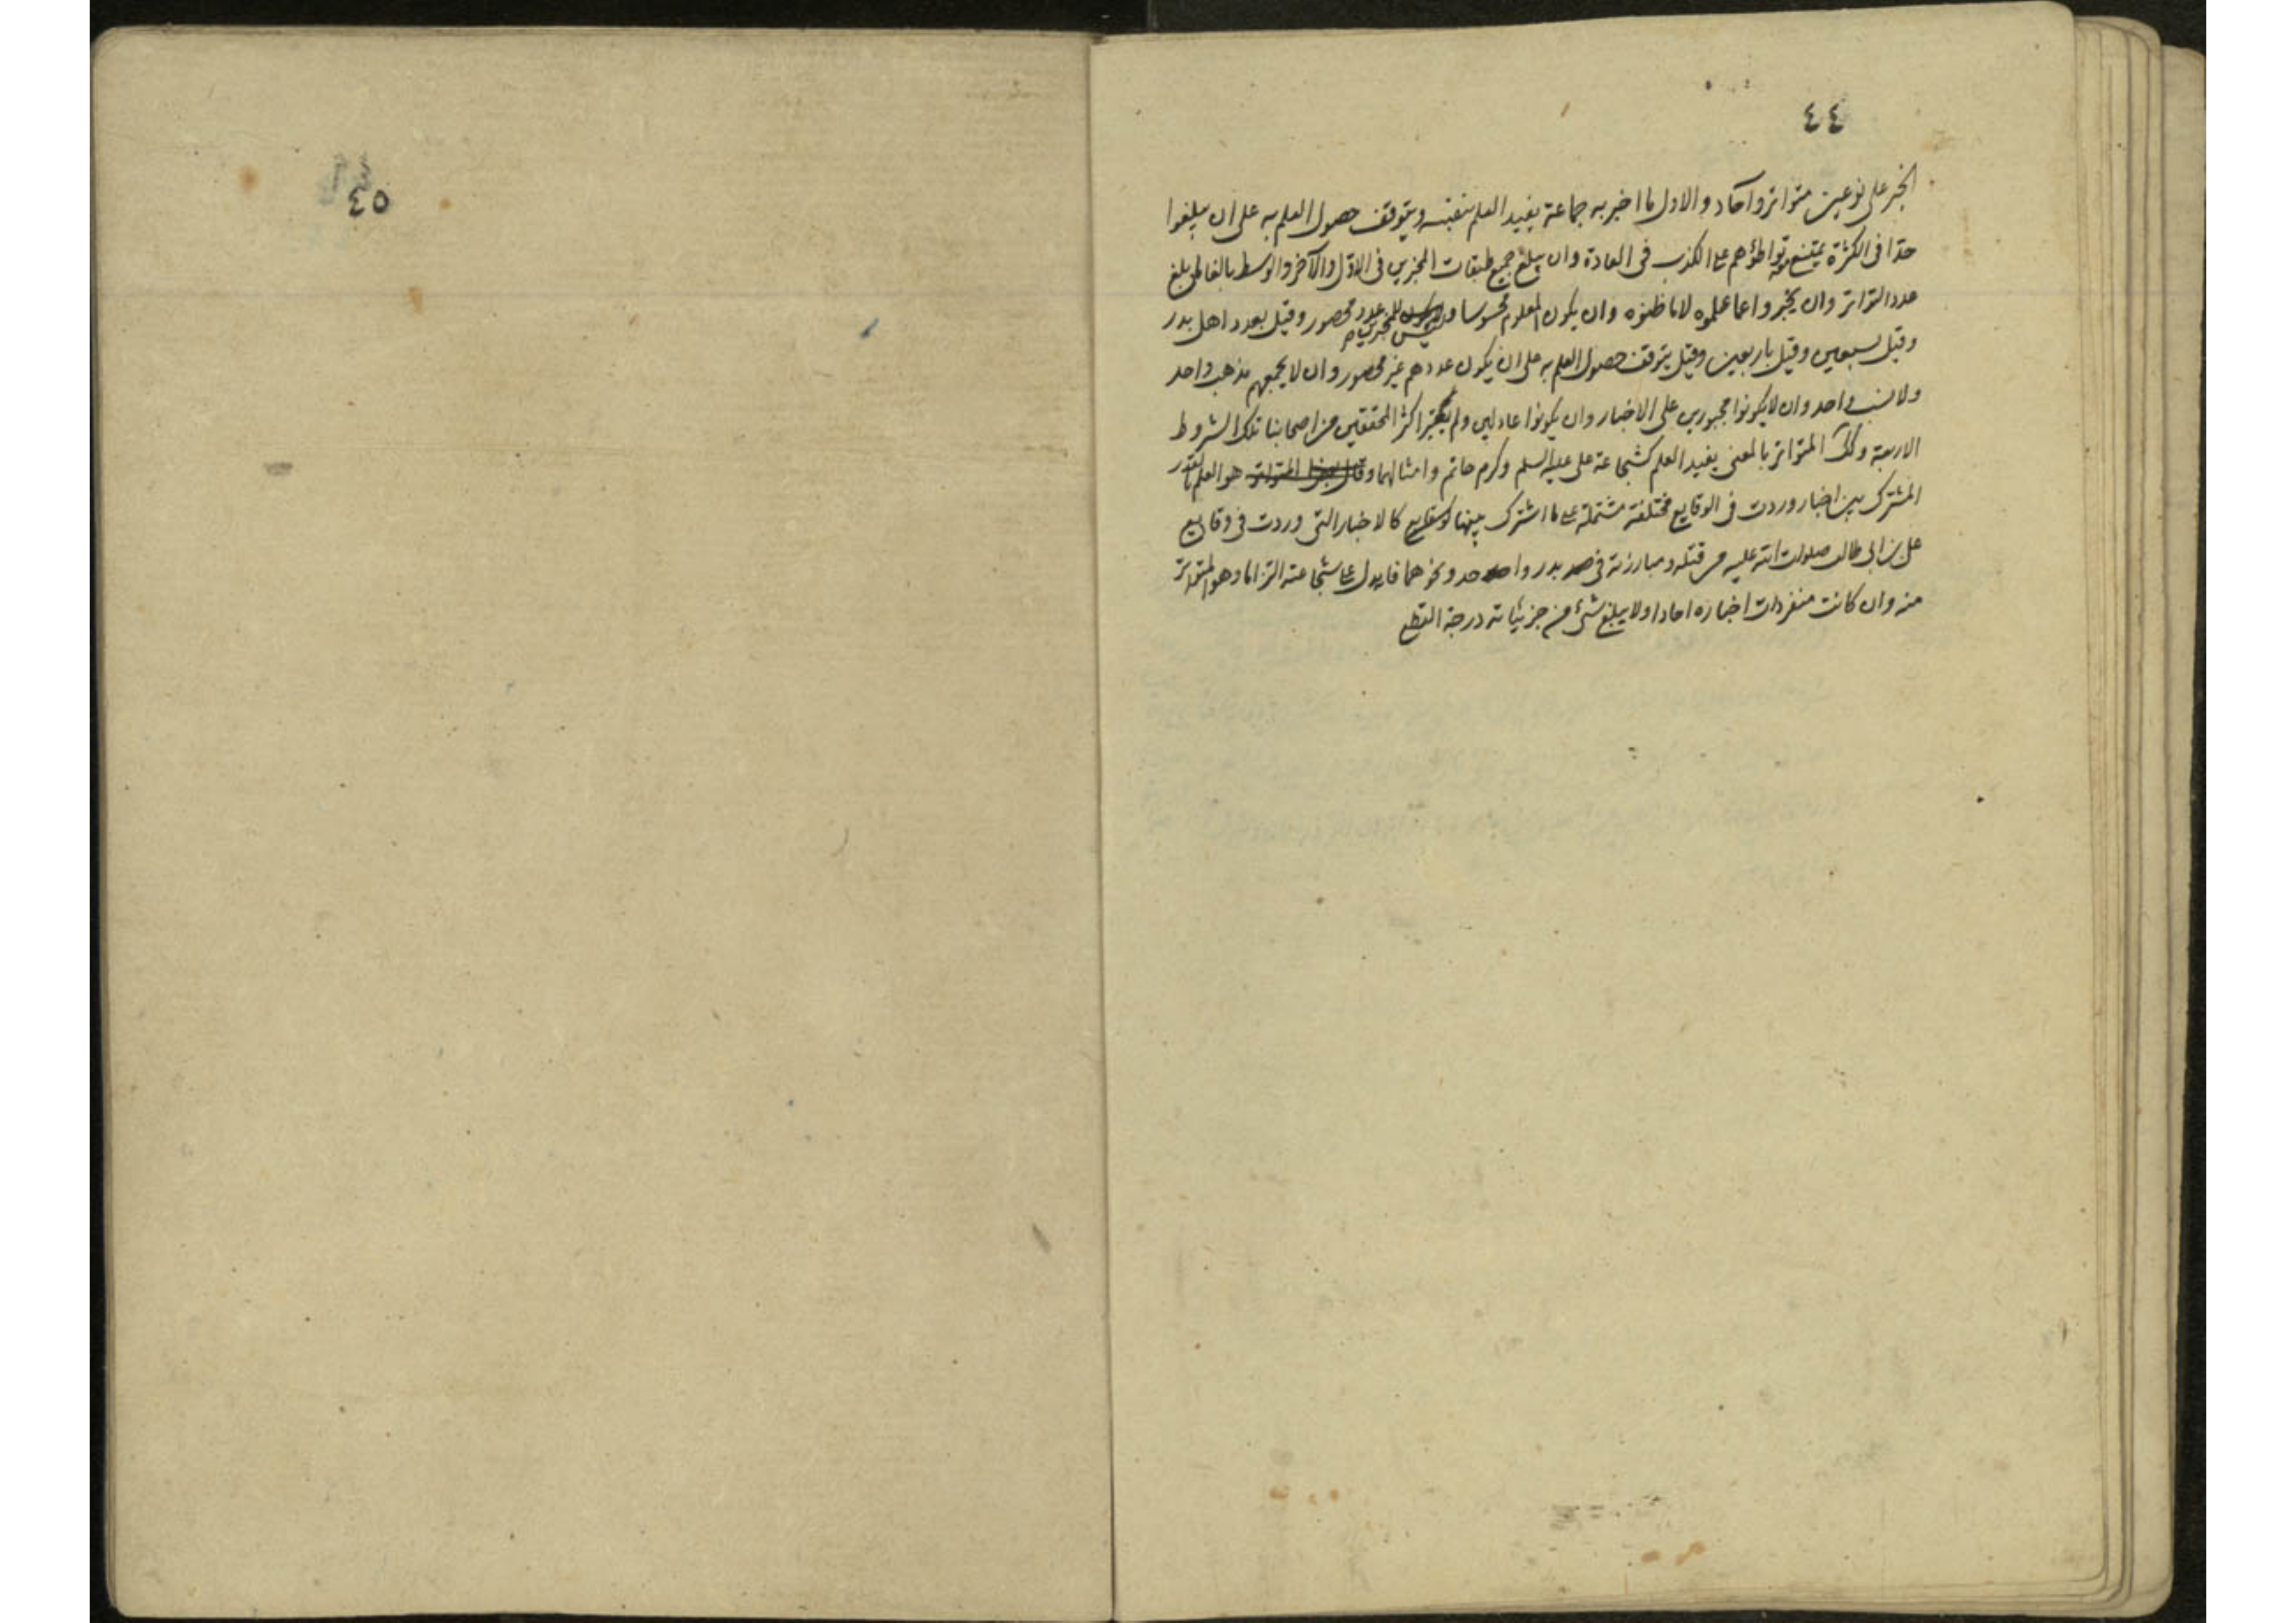 ٤٤
الخبر على نوعين متواتر وآحاد والاول ما اخبر به جماعة يفيد العلم بنفسه ويتوقف حصول العلم به على ان يبلغوا
حدا فى الكثرة يمتنع تواطؤهم على الكذب فى العادة وان يبلغ جميع طبقات المخبرين فى الاول والآخر والوسط بالغا مبلغ
عدد التواتر وان يخبروا عما علموه لا ما ظنوه وان يكون المعلوم محسوسا وليس للمخبرين عدد محصور وقيل بعدد اهل بدر
وقيل بسبعين وقيل باربعين وقيل يتوقف حصول العلم به على ان يكون عددهم غير محصور وان لا يجمعهم مذهب واحد
ولا نسب واحد وان لا يكونوا مجبورين على الاخبار وان يكونوا عادلين ولم يعتبر اكثر المحققين من اصحابنا تلك الشروط
الاربعة وكك المتواتر بالمعنى يفيد العلم كشجاعة على عليه السلم وكرم حاتم وامثالهما و هو العلم بالقدر
المشترك بين اخبار وردت فى الوقايع مختلفة مشتملة على ما اشترك بينها كالاخبار التى وردت فى وقايع
على بن ابى طالب صلوات الله عليه من قتله ومبارزته فى بدر واحد ونحوهما فا يدل على شجاعته التزاما وهو المتواتر
منه وان كانت منفردات اخباره احادا ولا يبلغ شئ من جزئياته درجة القطع
٤٥